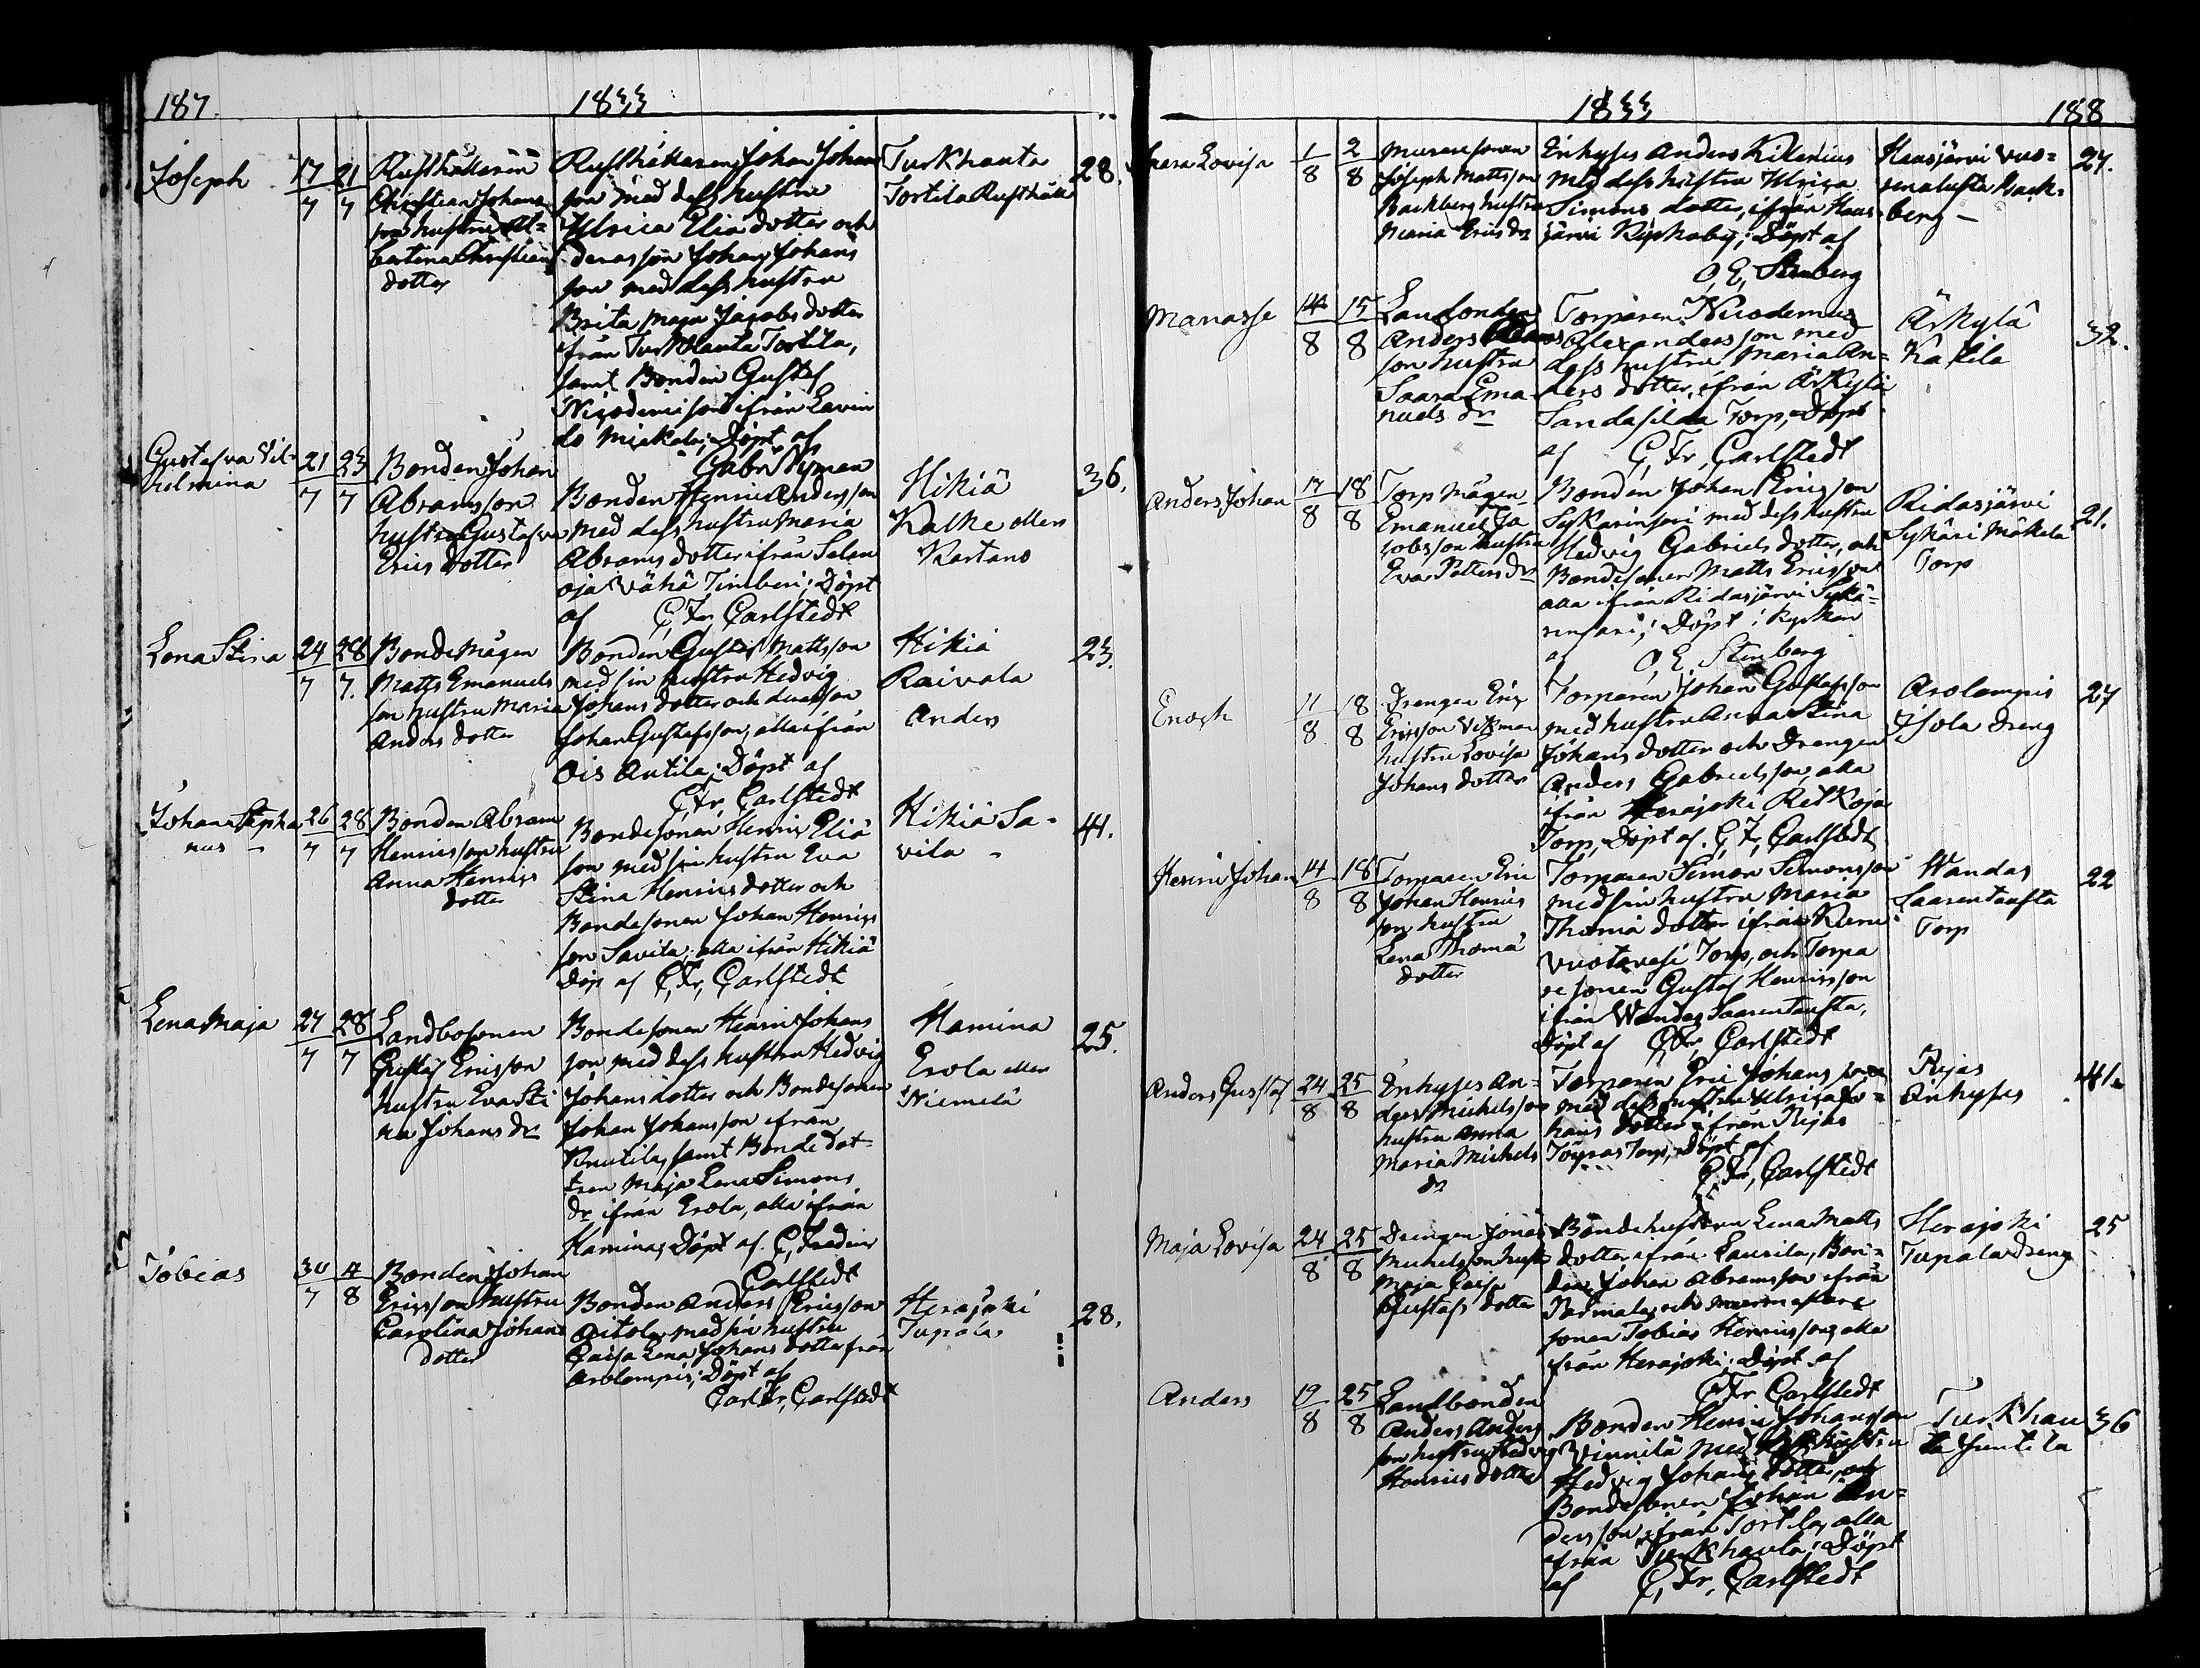 187.
1833
Joseph
17/7 21/7
Rusthållaren
Christian Johans
son hustru Al=
bertina Christians
dotter
Rusthållaren Johan Johans
son med dess hustru
Ulrica Eliæ dotter och
deras son Johan Johans
son med dess hustru
Brita Maja Jacobs dotter
ifrån Turkhauta Tortila,
samt Bonden Gustaf
Nicodemi son ifrån Lavin
do Mickola; Döpt af
Gabr. Nyman
Turkhauta
Tortila Rusthåll
28.
Gustafva Vil-
helmina
21/7 23/7
Bonden Johan
Abramsson
hustru Gustafva
Erics dotter
Bonden Henric Andersson
med dess hustru Maria
Abrams dotter ifrån Selen
oja Vähä Timberi; Döpt
af C. Fr. Carlstedt
Hikiä
Kalke eller
Kartano
36.
Lena Stina
24/7 28/7.
Bonde Mågen
Matts Emanuels
son hustru Maria
Anders dotter
Bonden Gustaf Mattsson
med sin hustru Hedvig
Johans dotter och deras son
Johan Gustafsson, alla ifrån
Ois Antila; Döpt af
C. Fr. Carlstedt
Hikiä
Raivala
Anders
23.
Johan Stepha
nus -
26/7 28/7
Bonden Abram
Henricsson hustru
Anna Henrics
dotter
Bondesonen Henric Eliæ
son med sin hustru Eva
Stina Henrics dotter och
Bondesonen Johan Henrics
son Savila, alla ifrån Hikiä
Döp af C. Fr. Carlstedt
Hikiä Sa-
vila -
41.
Lena Maja
27/7 28/7
Landbosonen
Gustaf Ericsson
hustru Eva Sti
na Johans dr
Bondesonen Henric Johans
son med dess hustru Hedvig
Johans dotter och Bondesonen
Johan Johansson ifrån
Knutila, samt Bonde dot-
tren Maja Lena Simons
dr ifrån Erola, alla ifrån
Hamina, Döpt af C. Fredric
Carlstedt
Hamina
Erola eller
Niemelä
25.
Tobias
30/7 4/8
Bonden Johan
Ericsson hustru
Carolina Johans
dotter
Bonden Anders Ericsson
Aitola, med sin hustru
Caisa Lena Johans dotter från
Arolampis; Döpt af
Carl Fr. Carlstedt
Herajoki
Tupala
28.
1833
188
Saara Lovisa
1/8 2/8
Muraresonen
Joseph Mattsson
Backberg hustru
Maria Erics dr
Enhyses Anders Kilenius
med dess hustru Ulrica
Simons dotter, ifrån Haus-
järvi Kyrkoby; Döpt af
O. E. Stenberg
Hausjärvi vuo-
renalusta Back-
berg -
27.
Manasse
14/8 15/8
Landbonden
Anders
son hustru
Saara Ema-
nuels dr
Torparen Nicodemus
Alexandersson med
dess hustru Maria An-
ders dotter, ifrån Ärkylä
Torp, Döpt
af C. Fr. Carlstedt
Ärkylä
Kakila
32.
Anders Johan
17/8 18/8
Torp Mågen
Emanuel Ja
cobsson hustru
Eva Petters dr
Bonden Johan Ericsson
med dess hustru
Hedvig Gabriels dotter, och
Bondesonen Matts Ericsson
alla ifrån Ridasjärvi Sykä-
rinsari; Döpt i Kyrkan
af O. E. Stenberg
Ridasjärvi
Sykäri Mäkelä
Torp
21.
Enoch
11/8 18/8
Drengen Eric
Ericsson Vikman
hustru Lovisa
Johans dotter
Torparen Johan Gustafsson
med hustru Anna Stina
Johans dotter och Drengen
Anders Gabrielsson, alla
ifrån Herajoki Retkoja
Torp, Döpt af C. F. Carlstedt
Arolampis
Isola dreng
27
Henric Johan
14/8 18/8
Torparen Eric
Johan Henrics
son hustru
Lena Thomæ
dotter
Torparen Simon Simonsson
med sin hustru Maria
Thomæ dotter ifrån
Torp, och Torpa
re sonen Gustaf Henricsson
ifrån Wandas Saarentausta,
Döpt af C. Fr. Carlstedt
Wandas
Saarentausta
Torp
22
Anders Gustaf
24/8 25/8
Enhyses An-
ders Michelsson
hustru Anna
Maria Michels
dr
Torparen Eric Johansson
med dess hustru Ulrica Jo-
hans dotter ifrån Rijas
Töyräs Torp, Döpt af
C. Fr. Carlstedt
Rijas
Enhyses
41.
Maja Lovisa
24/8 25/8
Drengen Jonas
Michelsson hustr
Maja Caisa
Gustafs dotter
Bondehustrun Lena Matts
dotter ifrån Laurila, Bon-
den Johan Abramsson ifrån
och
sonen Tobias Henricsson, alla
från Herajoki; Döpt af
C. Fr. Carlstedt
Herajoki
Tupala dreng
25
Anders
19/8 25/8
Landbonden
Anders Anders
son hustru Hedvig
Henrics dotter
Bonden Henric Johansson
Vinnilä med dess hustru
Hedvig Johans dotter, och
Bondesonen Johan An-
dersson ifrån Tortila, alla
ifrån Turkhauta; Döpt
af C. Fr. Carlstedt
Turkhau
ta Juntila
36